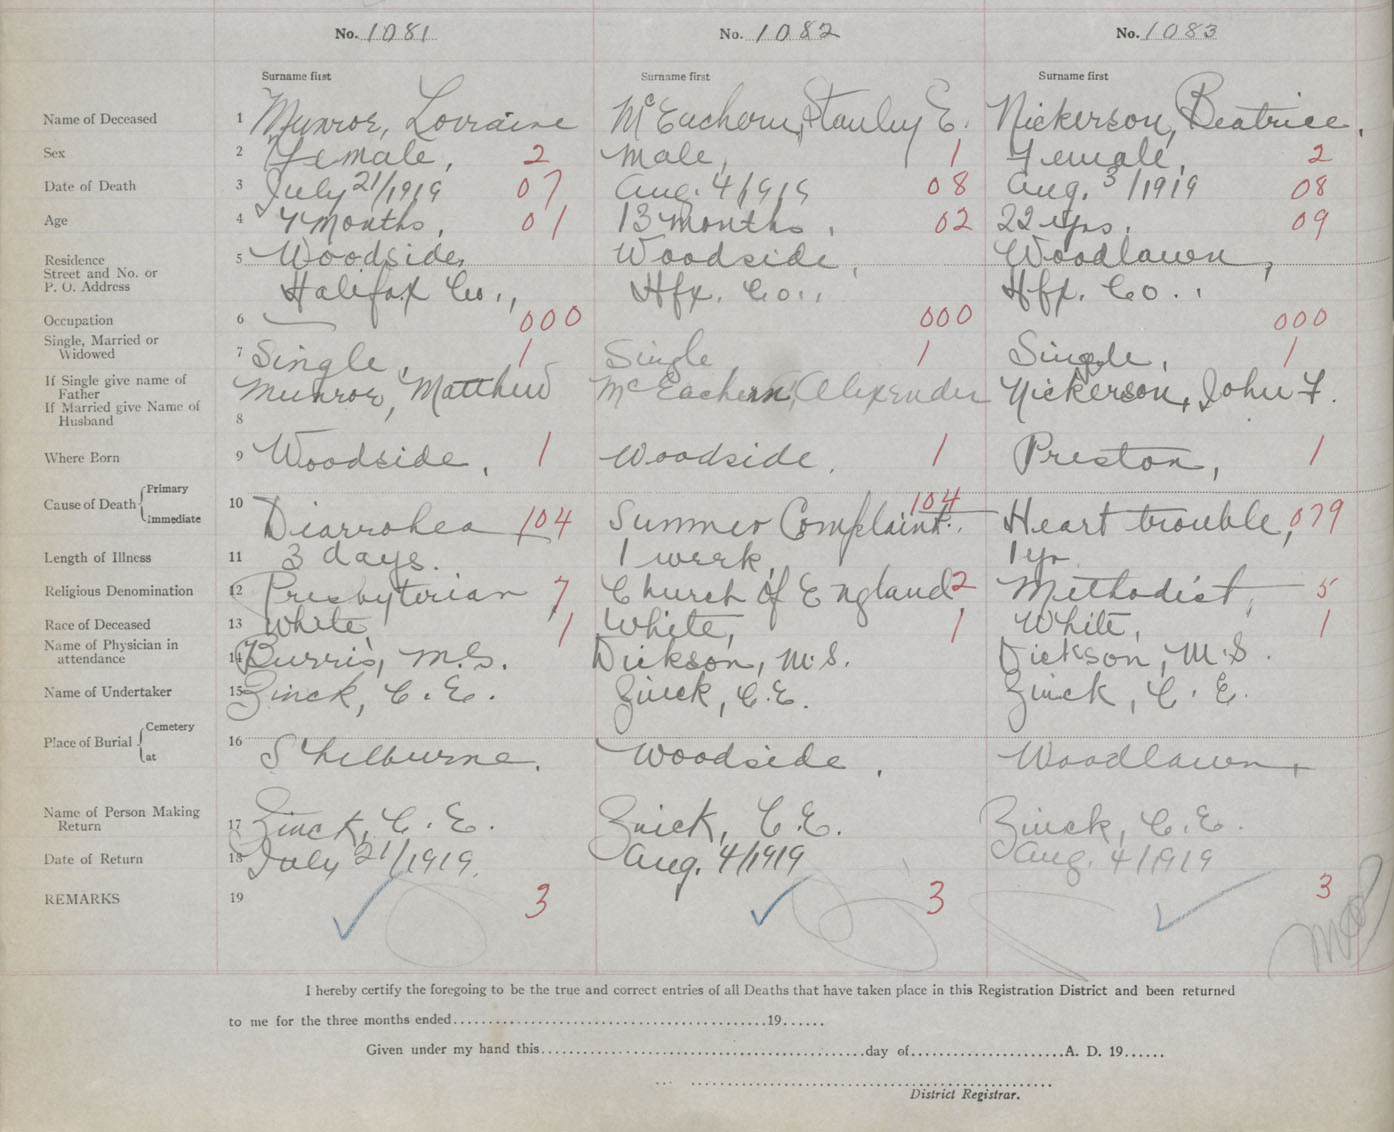 No. 1081 No. 1082 No. 1083
Surname first Surname first Surname first
Name of Deceased 1 Munroe, Lorraine McEachern, Stanley E. Nickerson, Beatrice.
Sex 2 Female, 2 Male, 1 Female, 2
Date of Death 3 July 21/1919 07 Aug. 4/1919 08 Aug. 3/1919 08
Age 4 4 Months, 01 13 months, 02 22 yrs. 09
Residence 5 Woodside, Woodside, Woodlawn,
Street and No. or
P. O. Address Halifax Co., Hfx. Co., Hfx. Co.,
Occupation 6 — 000 000 000
Single, Married or
Widowed 7 Single, 1 Single 1 Single, 1
If Single give name of
Father Munroe, Matthew McEachern, Alexender Nickerson, John F.
If Married give Name of
Husband 8
Where Born 9 Woodside, 1 Woodside. 1 Preston, 1
Cause of Death Primary 10
Immediate Diarrohea 104 Summer Complaint. 104 Heart trouble, 079
Length of Illness 11 3 days. 1 week, 1 yr
Religious Denomination 12 Presbyterian 7 Church of England 2 Methodist, 5
Race of Deceased 13 White, 1 White, 1 White, 1
Name of Physician in
attendance 14 Burris, M.S. Dickson, M.S. Dickson, M.S.
Name of Undertaker 15 Zinck, C. E. Zinck, C.E. Zinck, C. E.
Place of Burial Cemetery 16
at Shelburne. Woodside, Woodlawn,
Name of Person Making
Return 17 Zinck, C. E. Zinck, C.E. Zinck, C.E.
Date of Return 18 July 21/1919. Aug. 4/1919 Aug. 4/1919
REMARKS 19 3 3 3
I hereby certify the foregoing to be the true and correct entries of all Deaths that have taken place in this Registration District and been returned
to me for the three months ended 19
Given under my hand this day of A. D. 19
District Registrar.